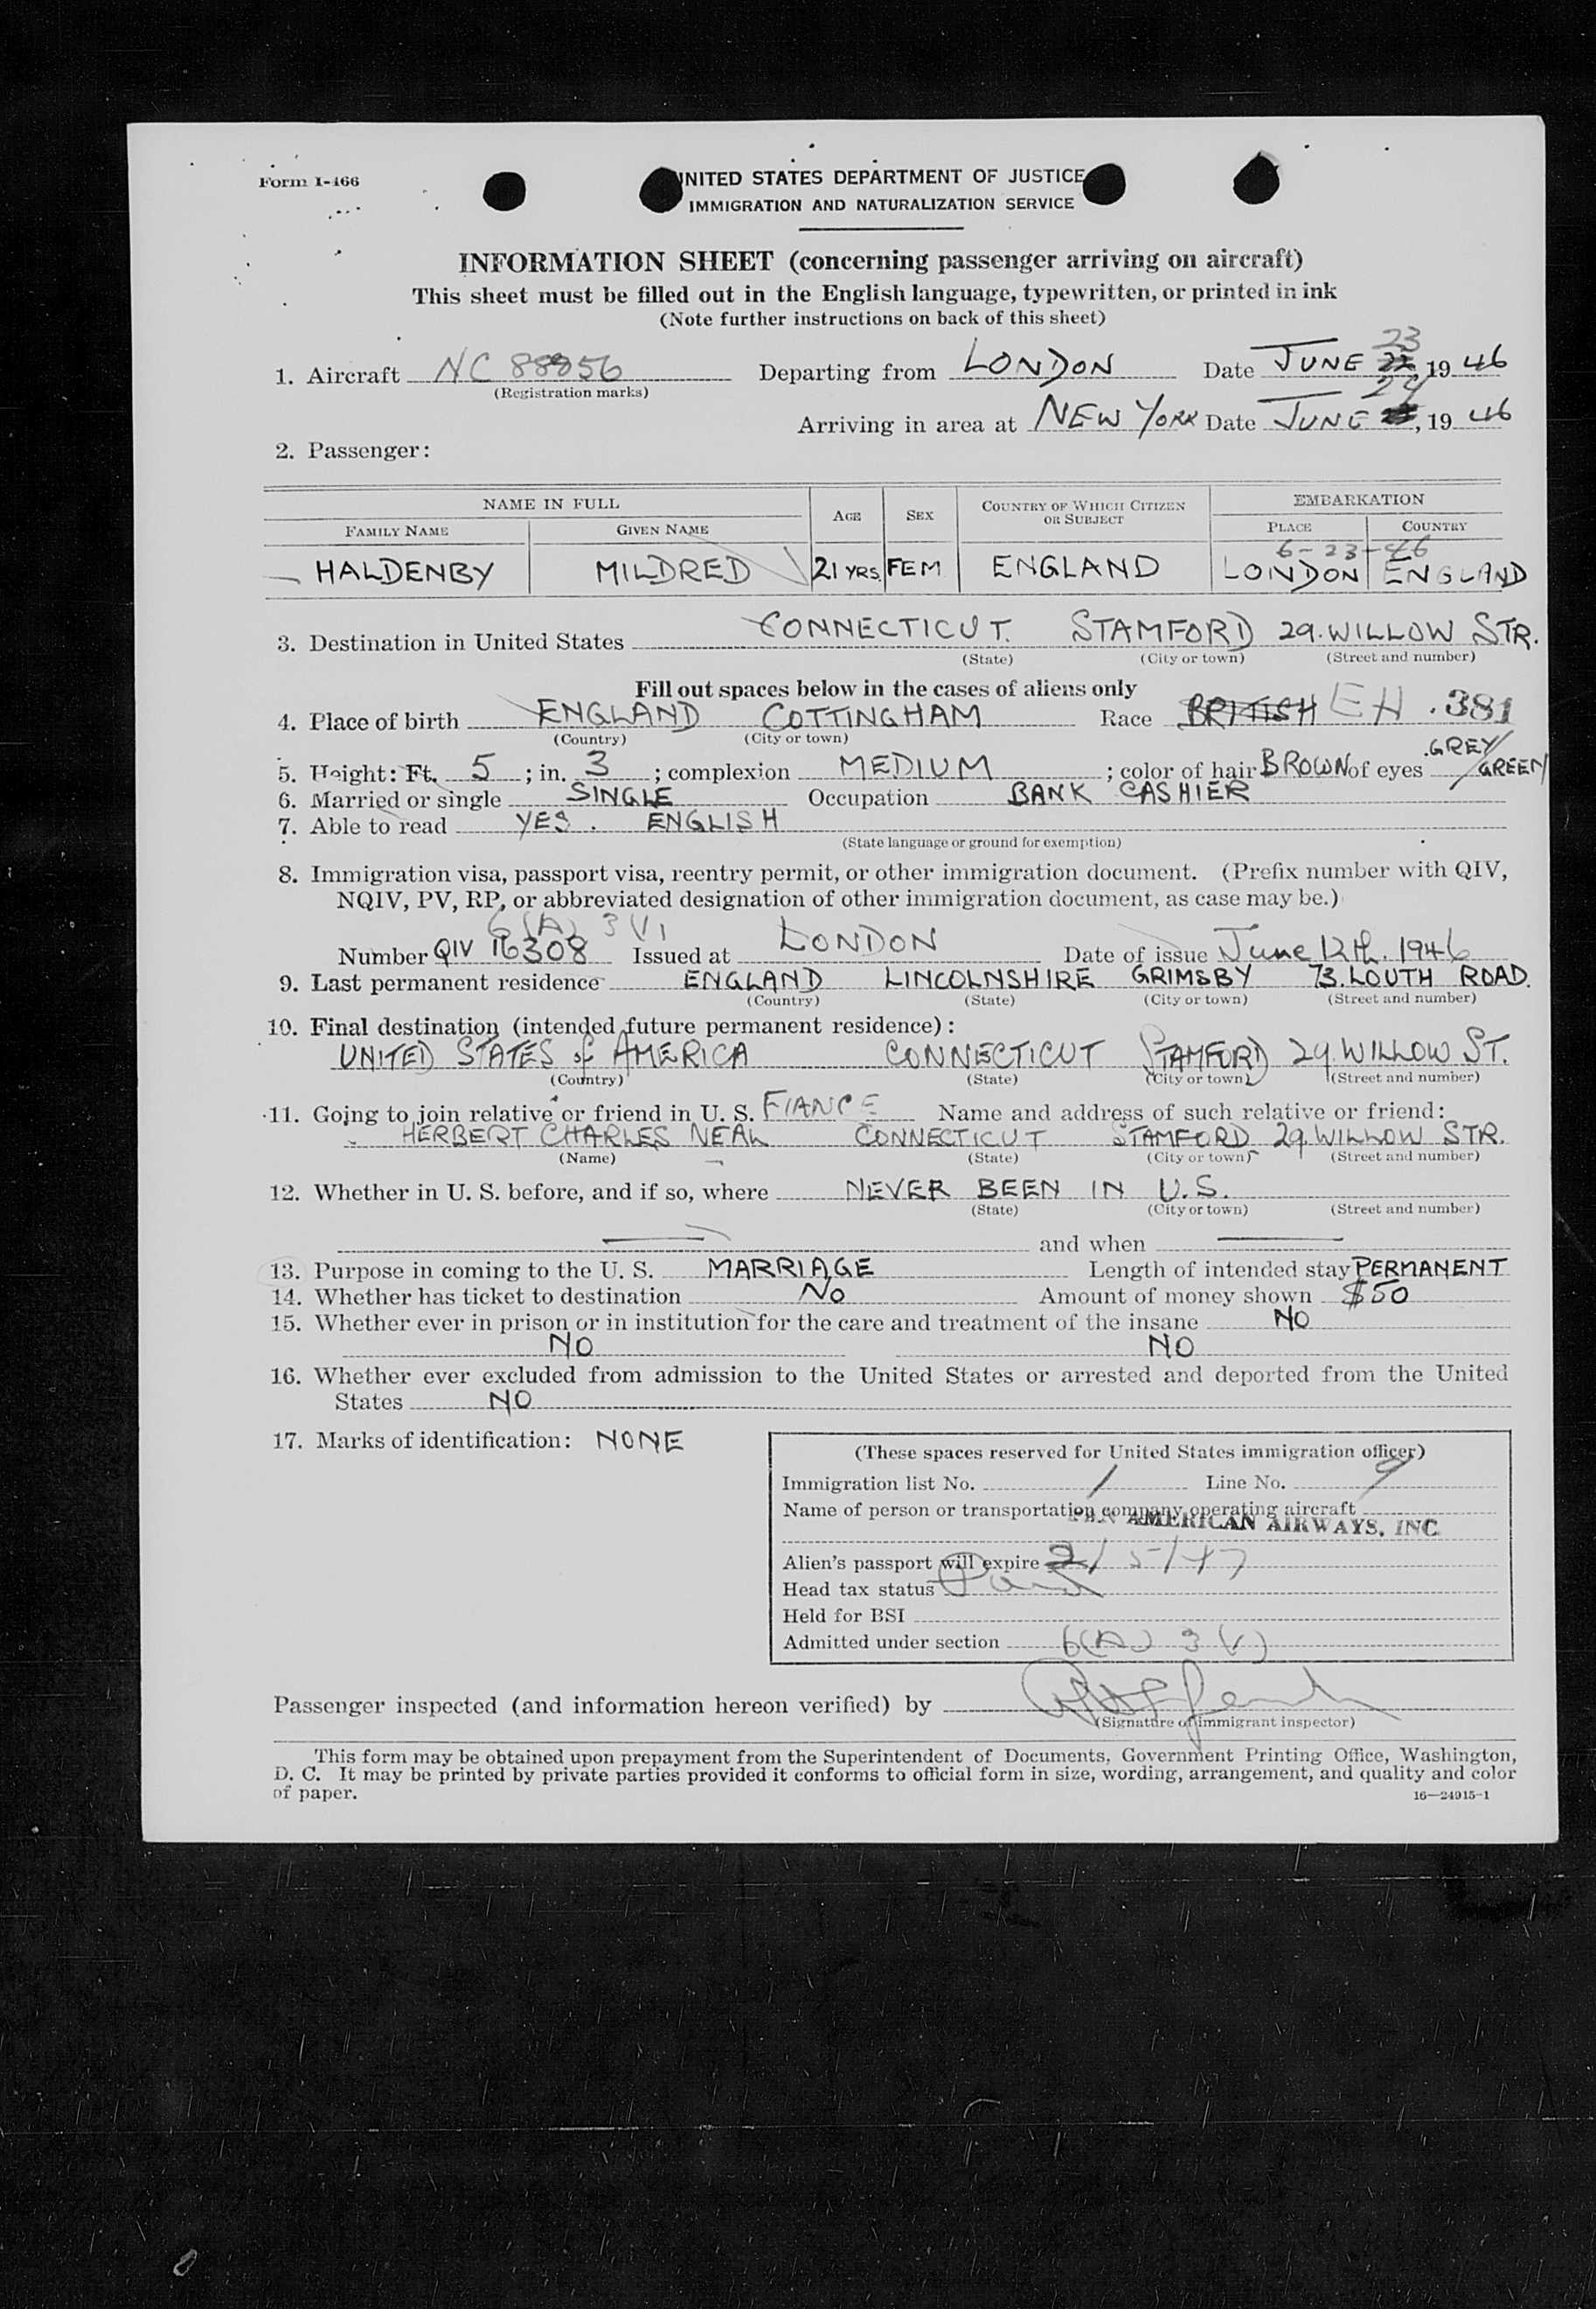 Form I-466
UNITED STATES DEPARTMENT OF JUSTICE
IMMIGRATION AND NATURALIZATION SERVICE
INFORMATION SHEET (concerning passenger arriving on aircraft)
This sheet must be filled out in the English language, typewritten, or printed in ink
(Note further instructions on back of this sheet)
23
1. Aircraft NC 88856 Departing from LONDON Date JUNE 22, 1946
(Registration marks)
24
Arriving in area at NEW YORK Date JUNE , 1946
2. Passenger:
NAME IN FULL AGE SEX COUNTRY OF WHICH CITIZEN OR SUBJECT EMBARKATION
FAMILY NAME GIVEN NAME PLACE COUNTRY
6-23-46
HALDENBY MILDRED 21 YRS. FEM ENGLAND LONDON ENGLAND
3. Destination in United States CONNECTICUT. STAMFORD 29. WILLOW STR.
(State) (City or town) (Street and number)
Fill out spaces below in the cases of aliens only
4. Place of birth ENGLAND COTTINGHAM Race BRITISH EH .381
(Country) (City or town)
5. Height: Ft. 5 ; in. 3 ; complexion MEDIUM ; color of hair BROWN of eyes GREY/GREEN
6. Married or single SINGLE Occupation BANK CASHIER
7. Able to read YES. ENGLISH
(State language or ground for exemption)
8. Immigration visa, passport visa, reentry permit, or other immigration document. (Prefix number with QIV,
NQIV, PV, RP, or abbreviated designation of other immigration document, as case may be.)
6(A) 3 (V)
Number QIV 16308 Issued at LONDON Date of issue June 12th. 1946
9. Last permanent residence ENGLAND LINCOLNSHIRE GRIMSBY 73. LOUTH ROAD.
(Country) (State) (City or town) (Street and number)
10. Final destination (intended future permanent residence):
UNITED STATES of AMERICA CONNECTICUT STAMFORD 29. WILLOW ST.
(Country) (State) (City or town) (Street and number)
11. Going to join relative or friend in U. S. FIANCE Name and address of such relative or friend:
HERBERT CHARLES NEAL CONNECTICUT STAMFORD 29. WILLOW STR.
(Name) (State) (City or town) (Street and number)
12. Whether in U. S. before, and if so, where NEVER BEEN IN U.S.
(State) (City or town) (Street and number)
and when
13. Purpose in coming to the U. S. MARRIAGE Length of intended stay PERMANENT
14. Whether has ticket to destination NO Amount of money shown $50
15. Whether ever in prison or in institution for the care and treatment of the insane NO
NO NO
16. Whether ever excluded from admission to the United States or arrested and deported from the United
States NO
17. Marks of identification: NONE
(These spaces reserved for United States immigration officer)
Immigration list No. 1 Line No. 9
Name of person or transportation company operating aircraft
PAN AMERICAN AIRWAYS, INC
Alien's passport will expire 2/5/47
Head tax status Paid
Held for BSI
Admitted under section 6(A) 3 (V)
Passenger inspected (and information hereon verified) by
(Signature of immigrant inspector)
This form may be obtained upon prepayment from the Superintendent of Documents, Government Printing Office, Washington,
D. C. It may be printed by private parties provided it conforms to official form in size, wording, arrangement, and quality and color
of paper.
16—24915-1